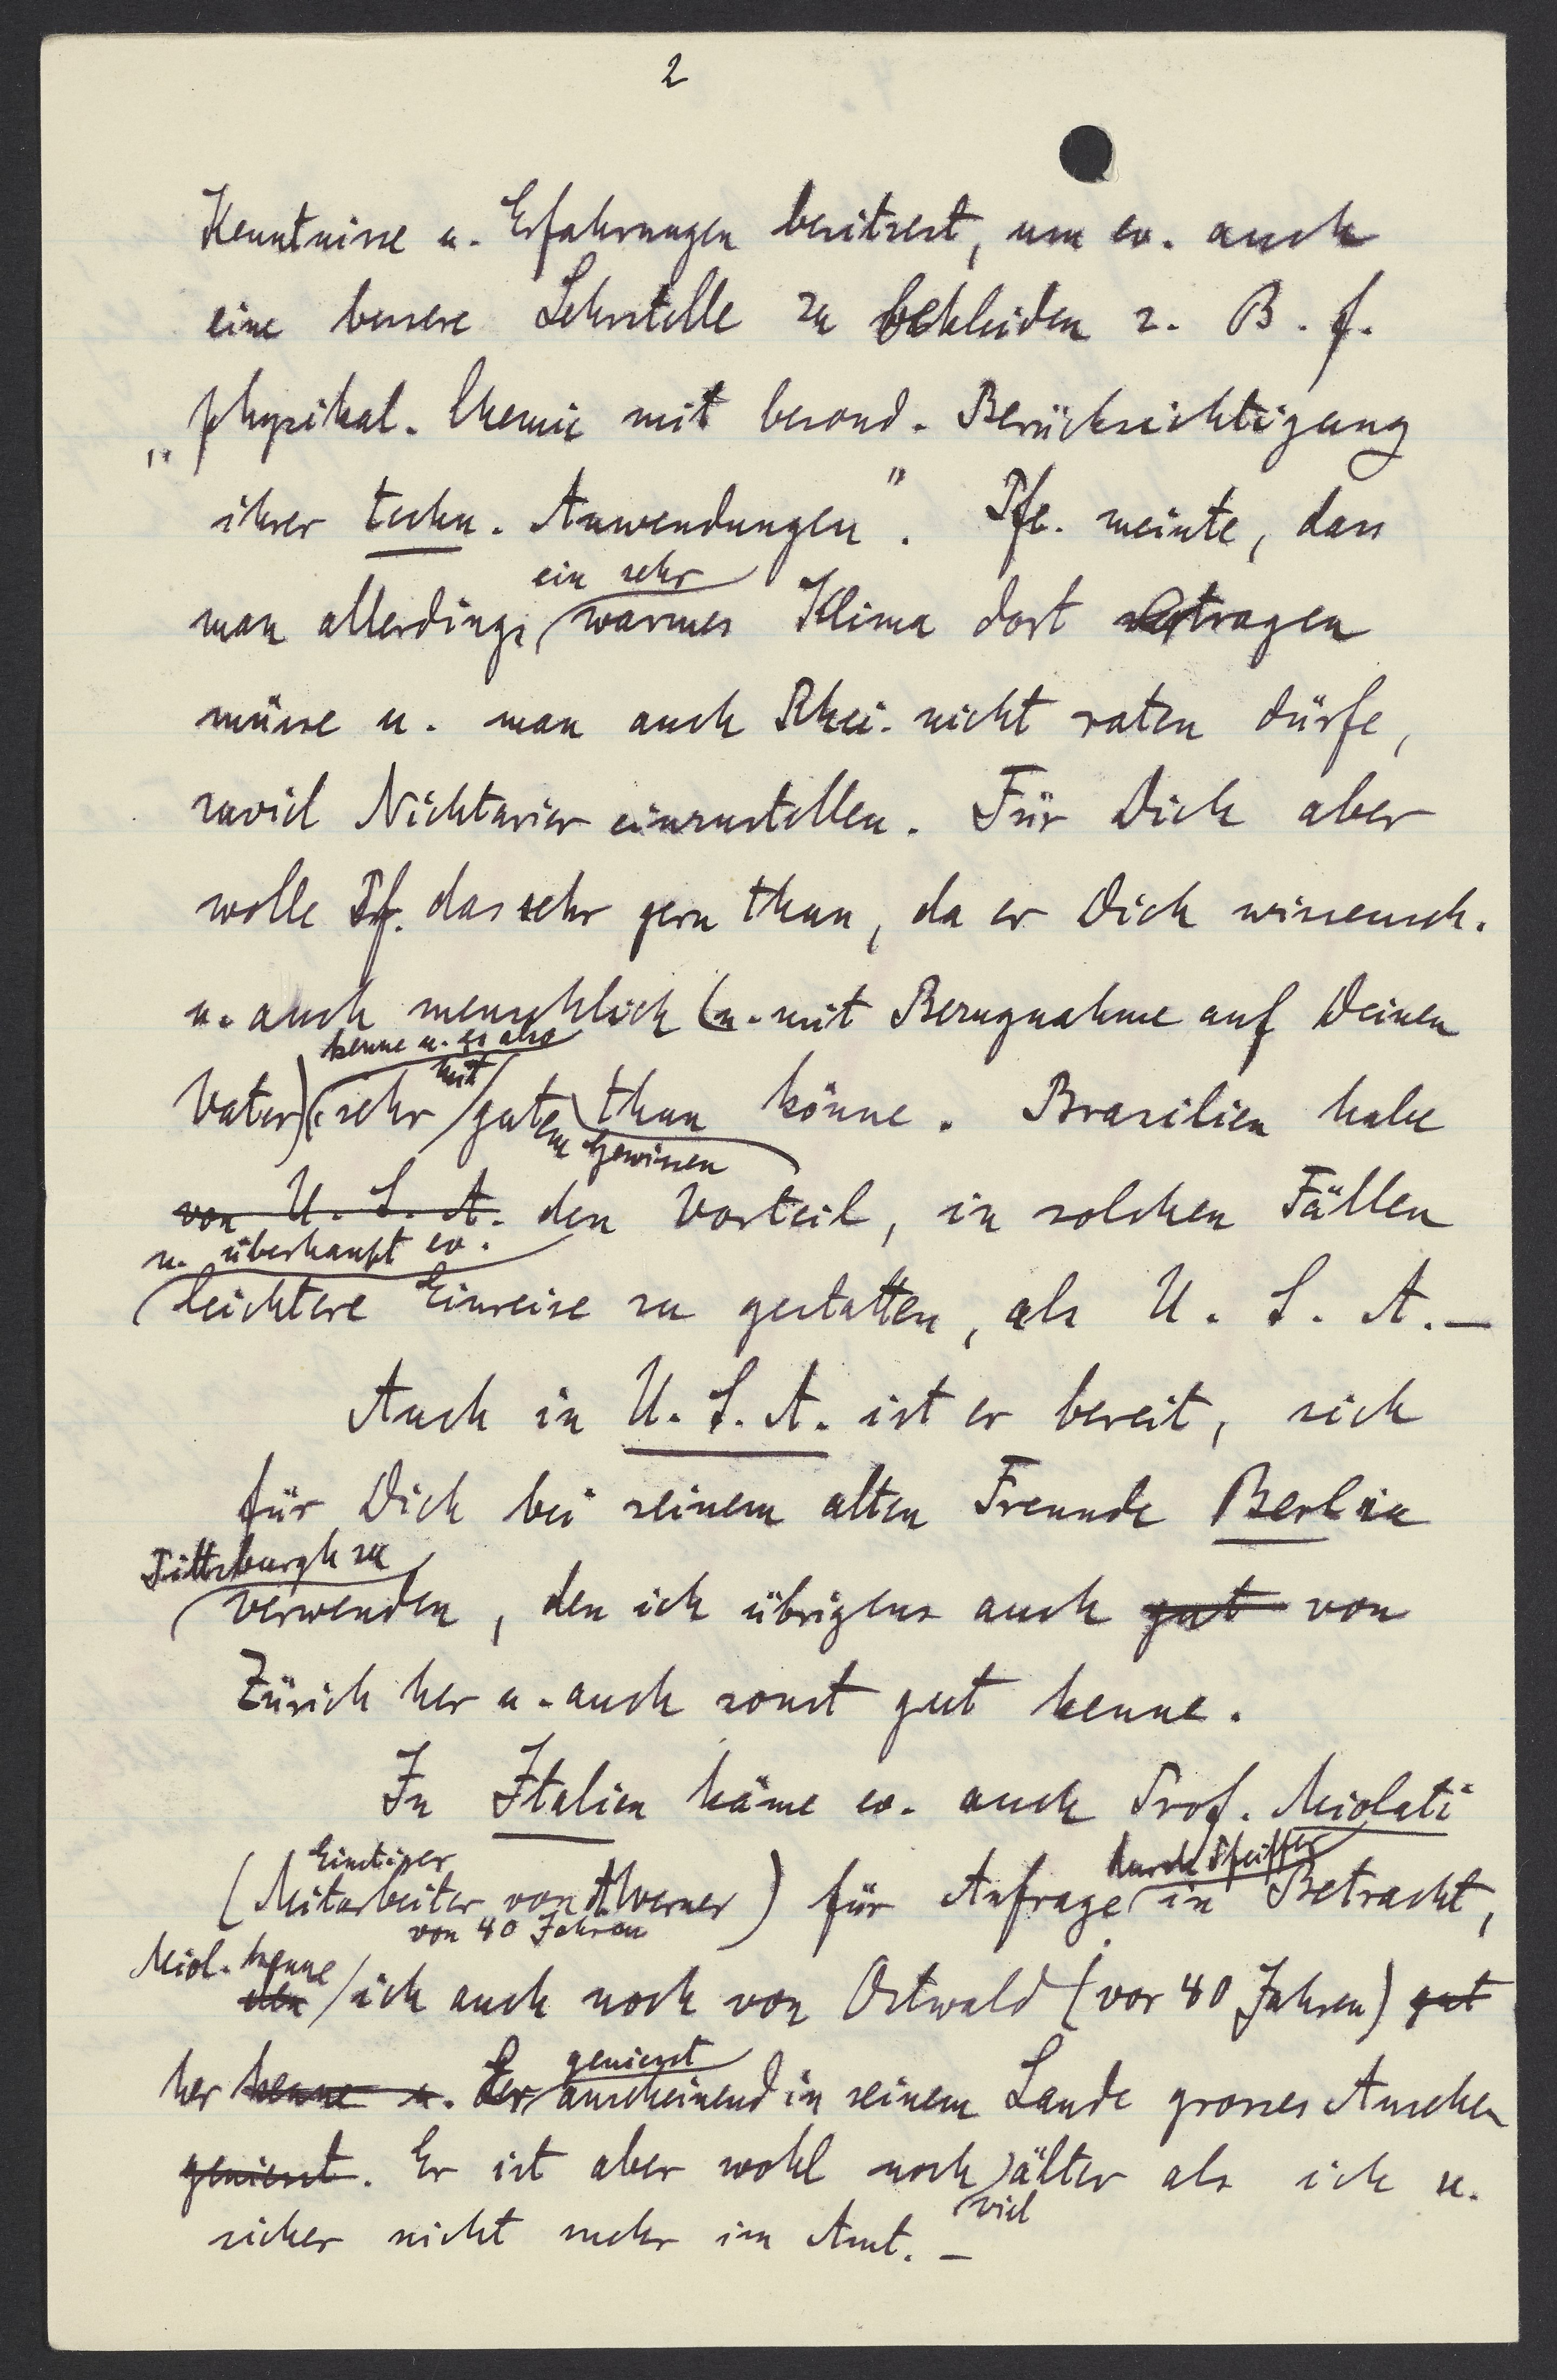 2
Kenntnisse u. Erfahrungen besitzest, um ev. auch
eine bessere Lehrstelle zu bekleiden z. B. f.
„physikal. Chemie mit besond. Berücksichtigung
ihrer techn. Anwendungen". Pfe. meinte, dass
ein sehr
man allerdings warmes Klima dort ertragen
müsse u. man auch Rhei. nicht raten dürfe,
zuviel Nichtarier einzustellen. Für Dich aber
wolle Pf. das sehr gern thun, da er Dich wissensch.
u. auch menschlich (u. mit Bezugnahme auf Deinen
kenne u. es also
mit
Vater) sehr gutem thun könne. Brasilien habe
Gewissen
von U. S. A. den Vorteil, in solchen Fällen
u. überhaupt ev.
leichtere Einreise zu gestatten, als U. S. A. —
Auch in U. S. A. ist er bereit, sich
für Dich bei seinem alten Freunde Berl in
Pittsburgh zu
verwenden, den ich übrigens auch gut von
Zürich her u. auch sonst gut kenne.
In Italien käme ev. auch Prof. Miolati
Einstiger
durch Pfeiffer
(Mitarbeiter von A Werner) für Anfrage in Betracht,
von 40 Jahren
Miol. kenne
den ich auch noch von Ostwald (vor 40 Jahren) gut
geniesst
her kenne u. Der anscheinend in seinem Lande grosses Ansehen
geniesst. Er ist aber wohl noch älter als ich u.
viel
sicher nicht mehr im Amt. —